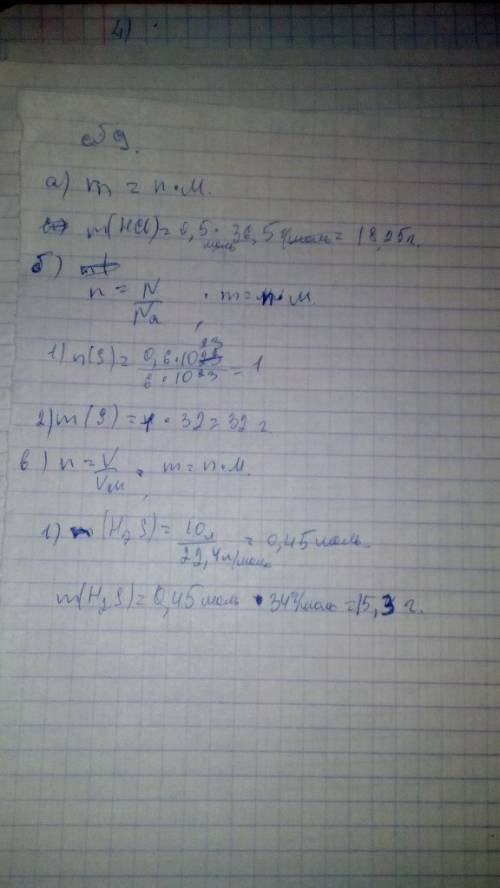 4)
с б 9.
а) m = n • M.
m(HCl) = 0,5 моль • 36,5 г/моль = 18,25 г.
б)
n = N/Na, • m = n • M.
1) n(S) = 0,6 • 10²³ / 6 • 10²³ = 1
2) m(S) = 1 • 32 = 32 г
в) n = V/Vм, m = n • M.
1) n(H₂S) = 10 л / 22,4 л/моль = 0,45 моль
m(H₂S) = 0,45 моль • 34 г/моль = 15,3 г.